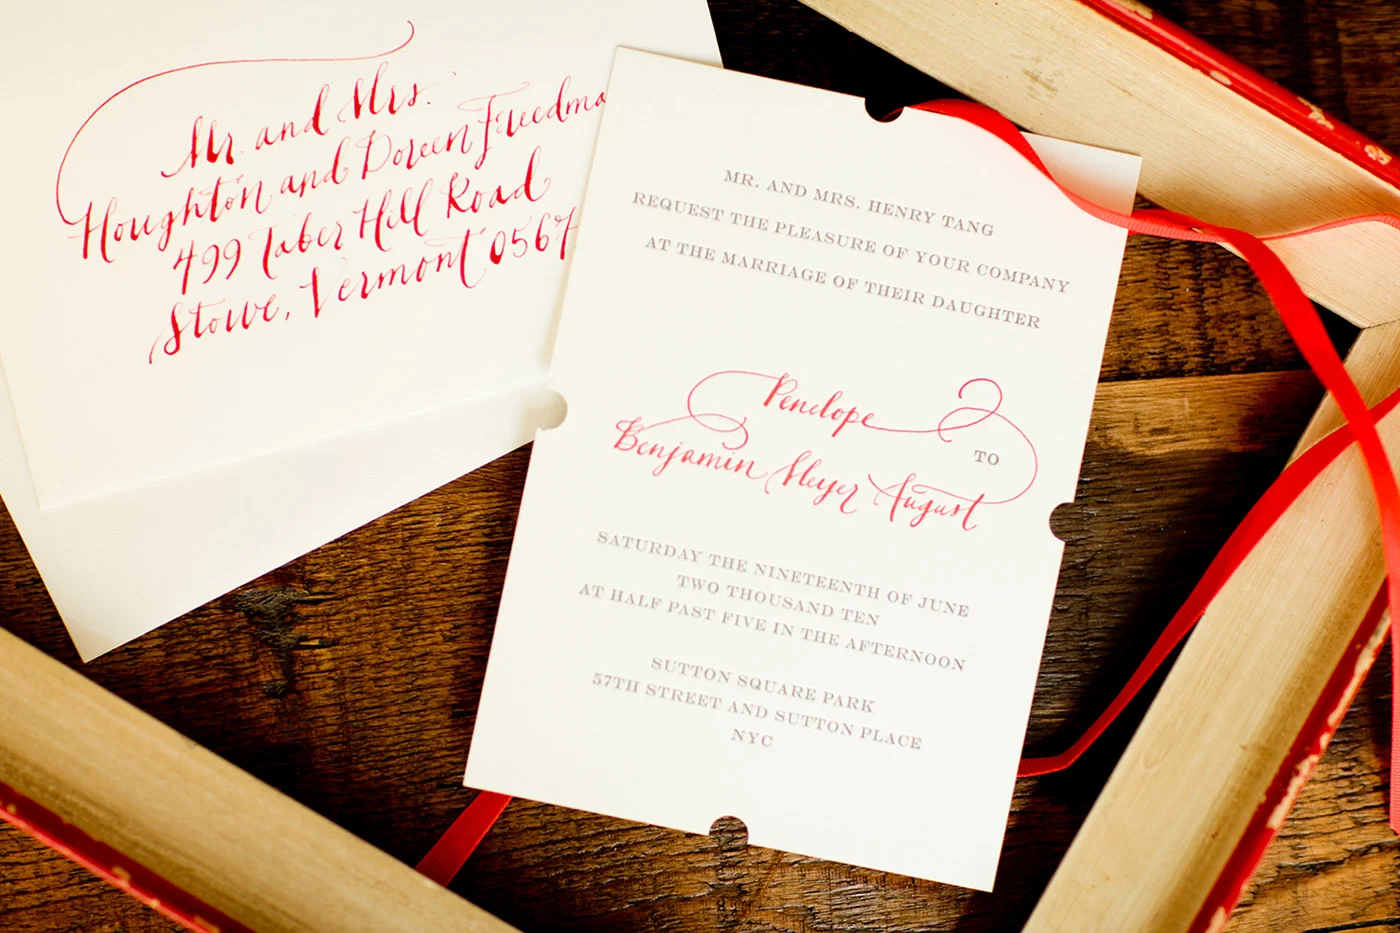 Mr. and Mrs.
Houghton and Doreen Freedma
499 Taber Hill Road
Stowe, Vermont 0567
MR. AND MRS. HENRY TANG
REQUEST THE PLEASURE OF YOUR COMPANY
AT THE MARRIAGE OF THEIR DAUGHTER
Penelope
TO
Benjamin Meyer August
SATURDAY THE NINETEENTH OF JUNE
TWO THOUSAND TEN
AT HALF PAST FIVE IN THE AFTERNOON
SUTTON SQUARE PARK
57TH STREET AND SUTTON PLACE
NYC